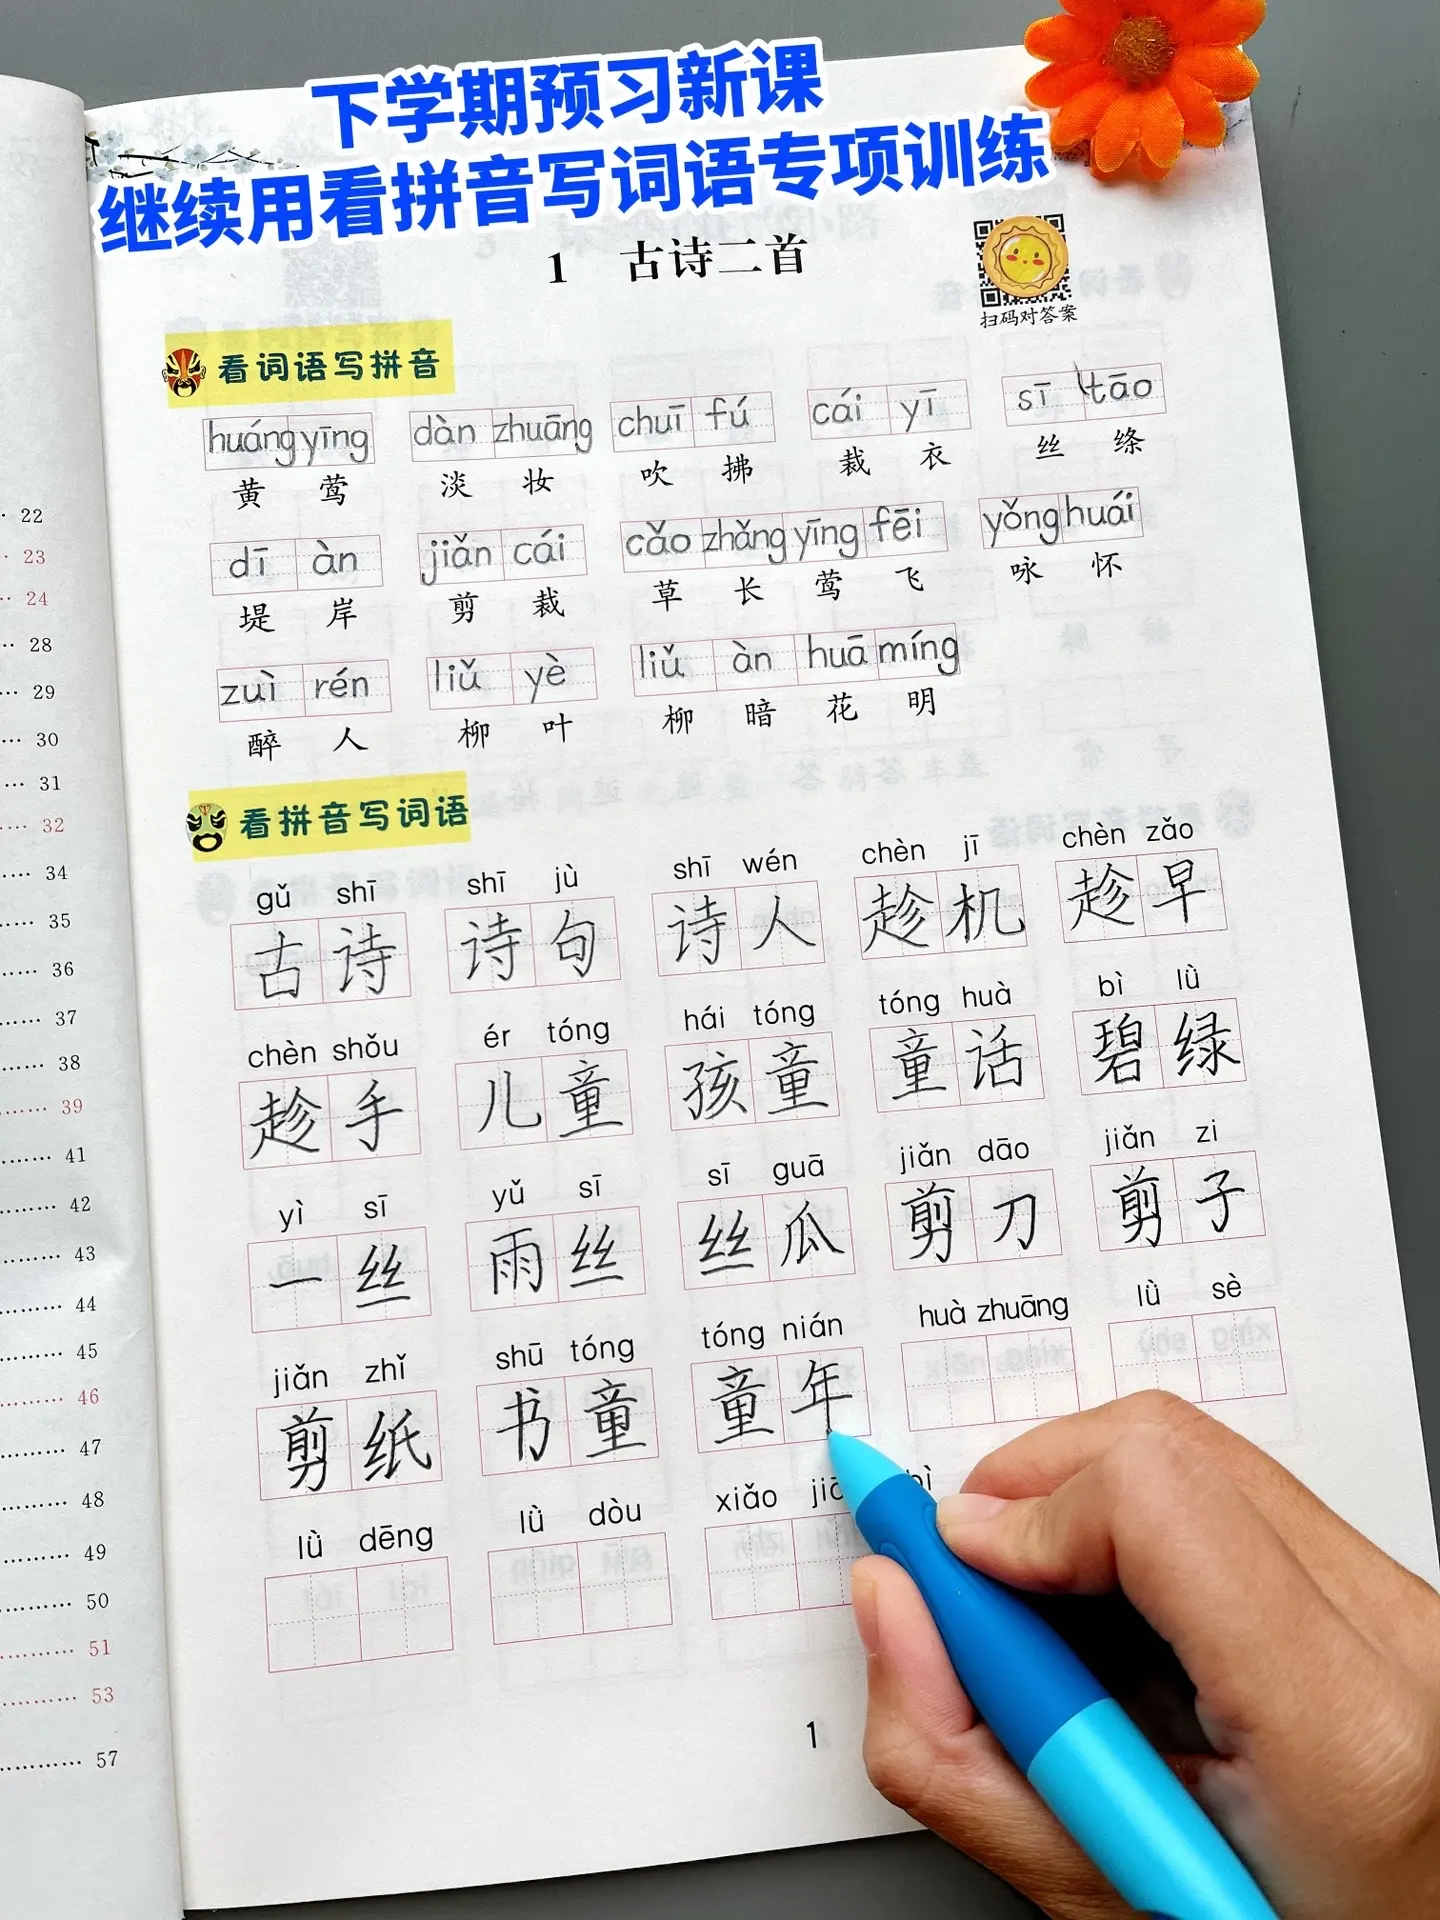 下学期预习新课
继续用看拼音写词语专项训练
1 古诗二首
扫码对答案
看词语写拼音
huáng yīng dàn zhuāng chuī fú cái yī sī tāo
黄 莺 淡 妆 吹 拂 裁 衣 丝 绦
dī àn jiǎn cái cǎo zhǎng yīng fēi yǒng huái
堤 岸 剪 裁 草 长 莺 飞 咏 怀
zuì rén liǔ yè liǔ àn huā míng
醉 人 柳 叶 柳 暗 花 明
看拼音写词语
gǔ shī shī jù shī wén chèn jī chèn zǎo
古诗 诗句 诗人 趁机 趁早
chèn shǒu ér tóng hái tóng tóng huà bì lǜ
趁手 儿童 孩童 童话 碧绿
yì sī yǔ sī sī guā jiǎn dāo jiǎn zi
一丝 雨丝 丝瓜 剪刀 剪子
jiǎn zhǐ shū tóng tóng nián huà zhuāng lǜ sè
剪纸 书童 童年
lǜ dēng lǜ dòu xiǎo
1
22
23
24
28
29
30
31
32
34
35
36
37
38
39
41
42
43
44
45
46
47
48
49
50
51
53
57